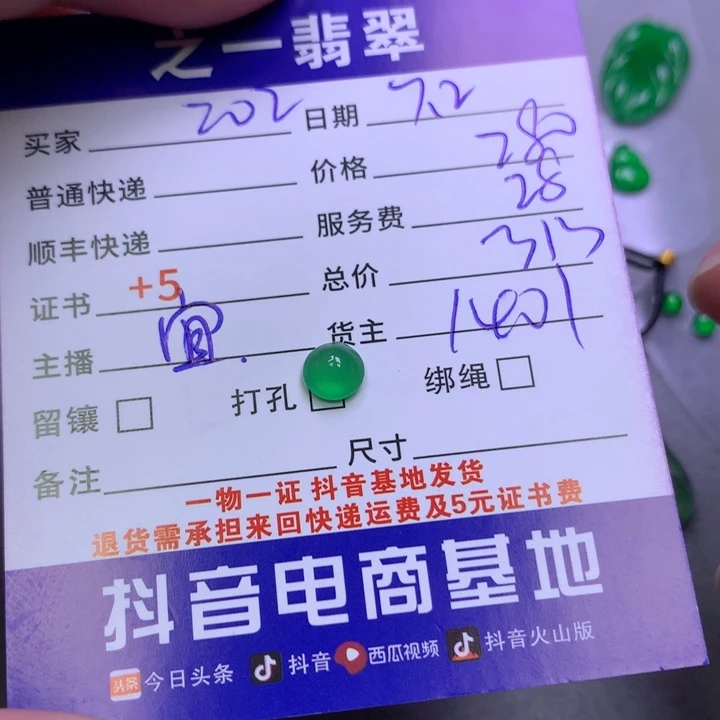 之一翡翠
买家 202 日期 7.2
普通快递 价格 280
顺丰快递 服务费 28
证书 +5 总价 313
主播 宜. 货主 1401
留镶 打孔 绑绳
备注 尺寸
一物一证 抖音基地发货
退货需承担来回快递运费及5元证书费
抖音电商基地
头条 今日头条 抖音 西瓜视频 抖音火山版